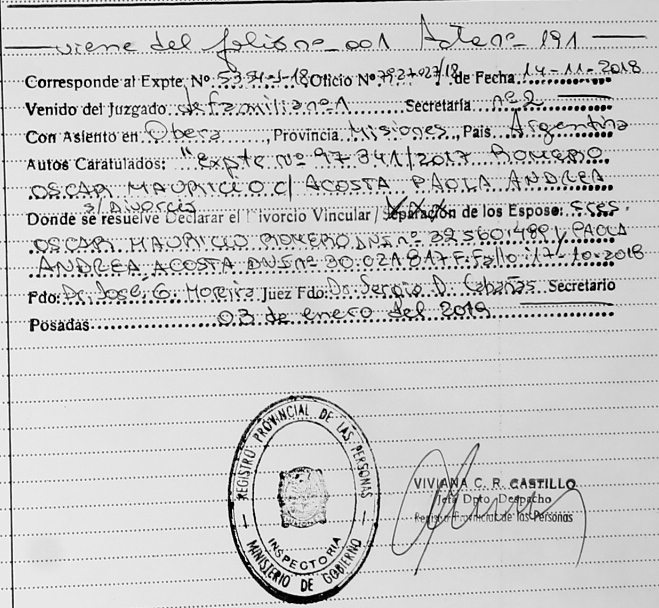 viene del folio nº 001 Acta nº 191
Corresponde al Expte. Nº 5354-J-18 Oficio Nº 792+027/18 de Fecha 14-11-2018
Venido del Juzgado de familia nº 1 Secretaría nº 2
Con Asiento en Obera, Provincia Misiones, País Argentina
Autos Caratulados: "Expte Nº 97341/2017 ROMERO
OSCAR MAURICIO C/ ACOSTA PAOLA ANDREA
s/ Divorcio
Donde se resuelve Declarar el Divorcio Vincular / Separación de los Esposos: Sres.
OSCAR MAURICIO ROMERO DNI nº 32.560.489 / PAOLA
ANDREA ACOSTA DNI nº 30.021.817 F. Fallo: 17-10-2018
Fdo: Dr. José G. Moreira Juez Fdo: Dr. Sergio D. Cabañas Secretario
Posadas 03 de enero del 2019
REGISTRO PROVINCIAL DE LAS PERSONAS
INSPECTORIA
MINISTERIO DE GOBIERNO
VIVIANA C. R. CASTILLO
Jefe Dpto Despacho
Registro Provincial de las Personas